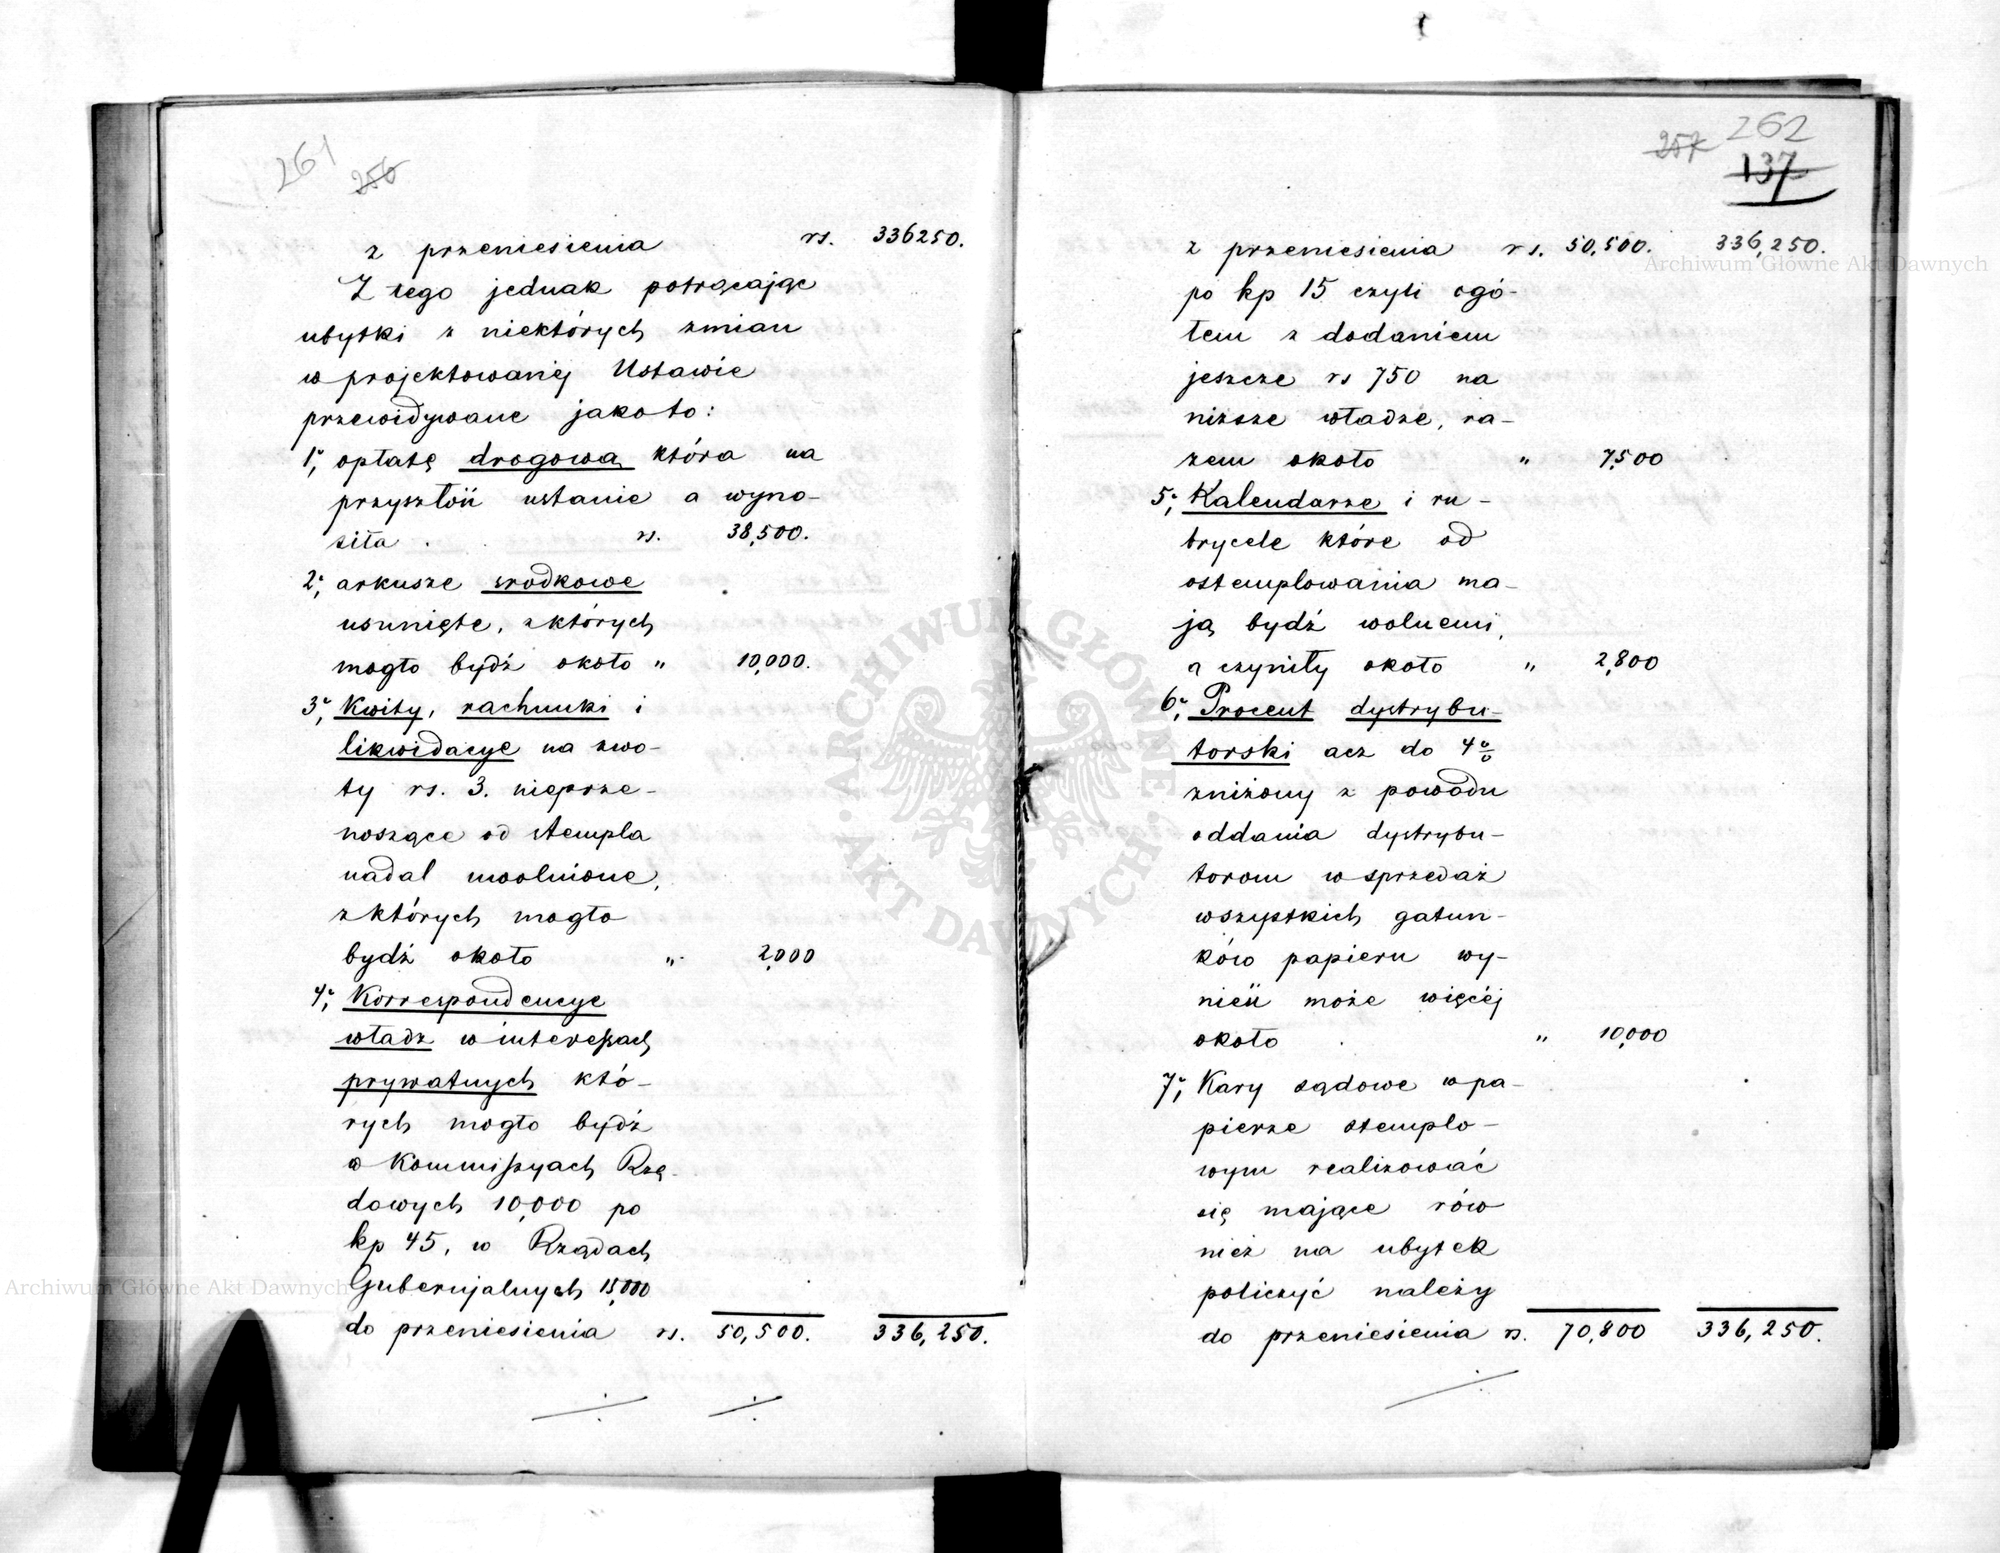 261
256
z przeniesienia rs. 336250.
Z tego jednak potrącając
ubytki z niektórych zmian
w projektowanéj Ustawie
przewidywane jakoto:
1°, opłatę drogową która na
przyszłość ustanie a wyno-
siła . rs. 38,500.
2°, arkusze srodkowe
usunięte, z których
mogło bydź około " 10,000.
3°, Kwity, rachunki i
likwidacye na kwo-
ty rs. 3. nieprze-
noszące od stempla
nadal uwolnione,
z których mogło
bydź około " 2,000
4°, Korrespondencye
władz w interessach
prywatnych któ-
rych mogło bydź
w Kommissyach Rzą-
dowych 10,000 po
kp 45, w Rządach
Gubernjalnych 15,000
do przeniesienia rs. 50,500. 336,250.
257 262
137
z przeniesienia rs. 50,500. 336,250.
po kp 15 czyli ogó-
łem z dodaniem
jeszcze rs 750 na
niższe władze, ra-
zem około " 7,500
5°, Kalendarze i ru-
brycele które od
ostemplowania ma-
ją bydź wolnemi,
a czyniły około " 2,800
6°, Procent dystrybu-
torski acz do 4%
zniżony z powodu
oddania dystrybu-
torom w sprzedaż
wszystkich gatun-
ków papieru wy-
nieść może więcéj
około . " 10,000
7°, Kary sądowe w pa-
pierze stemplo-
wym realizować
się mające rów
nież na ubytek
policzyć należy
do przeniesienia rs. 70,800 336,250.
ARCHIWUM GŁÓWNE AKT DAWNYCH
Archiwum Główne Akt Dawnych
Archiwum Główne Akt Dawnych